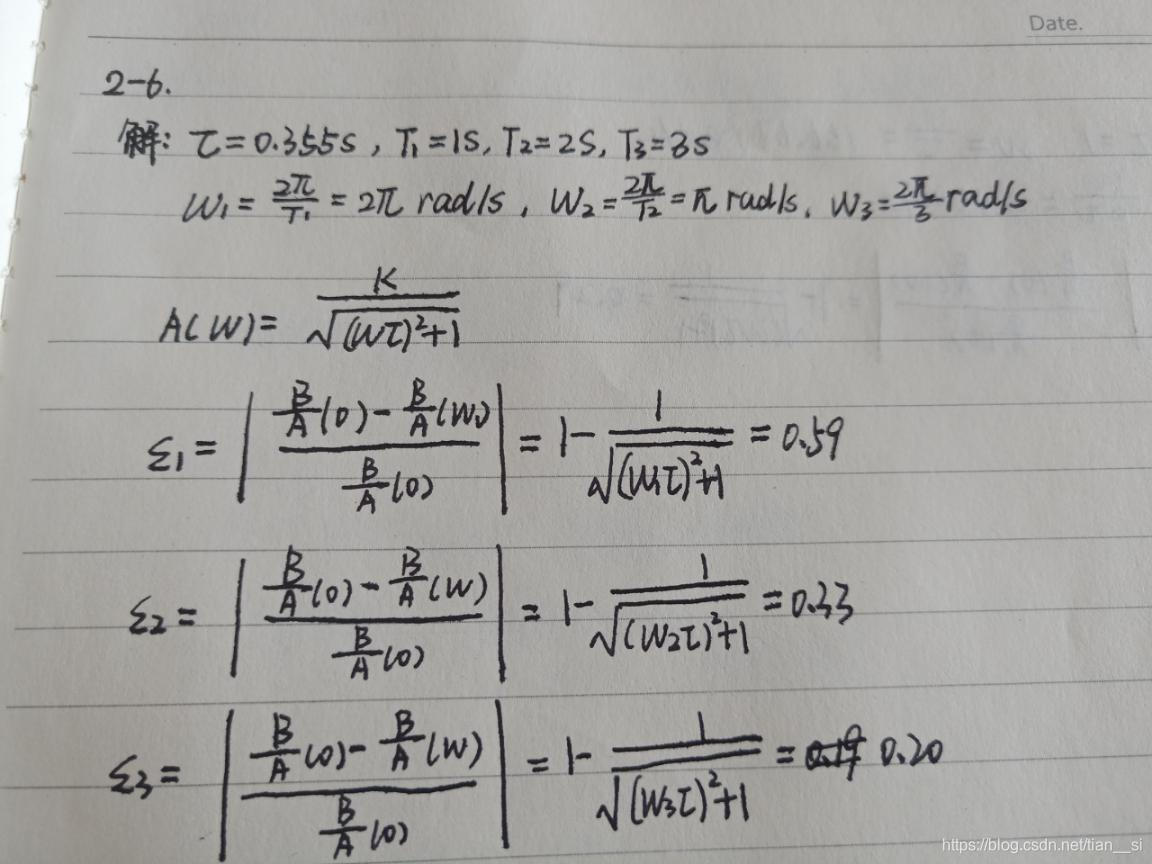 Date.
2-6.
解: τ=0.355s, T₁=1S, T₂=2S, T₃=3S
W₁=2π/T₁=2π rad/s, W₂=2π/T₂=π rad/s, W₃=2π/3 rad/s
A(W)=K/√((Wτ)²+1)
ε₁=|(B/A(0)-B/A(W₁))/(B/A(0))|=1-1/√((W₁τ)²+1)=0.59
ε₂=|(B/A(0)-B/A(W))/(B/A(0))|=1-1/√((W₂τ)²+1)=0.33
ε₃=|(B/A(0)-B/A(W))/(B/A(0))|=1-1/√((W₃τ)²+1)=0.20
https://blog.csdn.net/tian__si